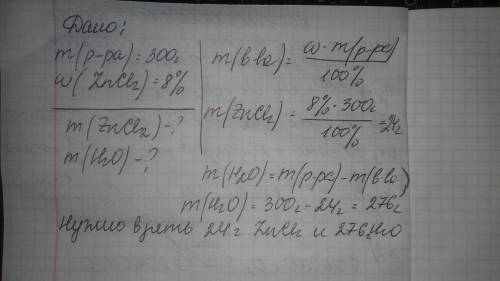 Дано:
m(р-ра)=300г
ω(ZnCl₂)=8%
m(ZnCl₂)-?
m(H₂O)-?
m(в-ва)= ω·m(р-ра)
100%
m(ZnCl₂)= 8%·300г =24г
100%
m(H₂O)=m(р-ра)-m(в-ва)
m(H₂O)=300г-24г=276г
Нужно взять 24г ZnCl₂ и 276г H₂O